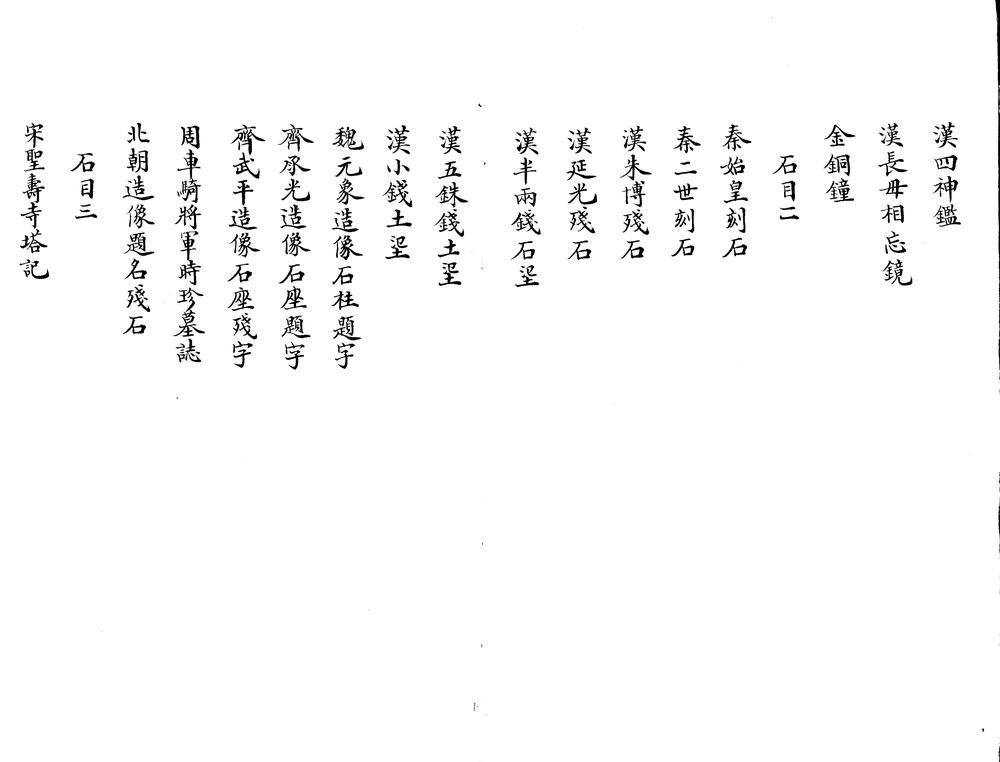 漢四神鑑
漢長毋相忘鏡
金銅鐘
石目二
秦始皇刻石
秦二世刻石
漢朱博殘石
漢延光殘石
漢半兩錢石笵
漢五銖錢土笵
漢小錢土笵
魏元象造像石柱題字
齊承光造像石座題字
齊武平造像石座殘字
周車騎將軍時珍墓誌
北朝造像題名殘石
石目三
宋聖壽寺塔記